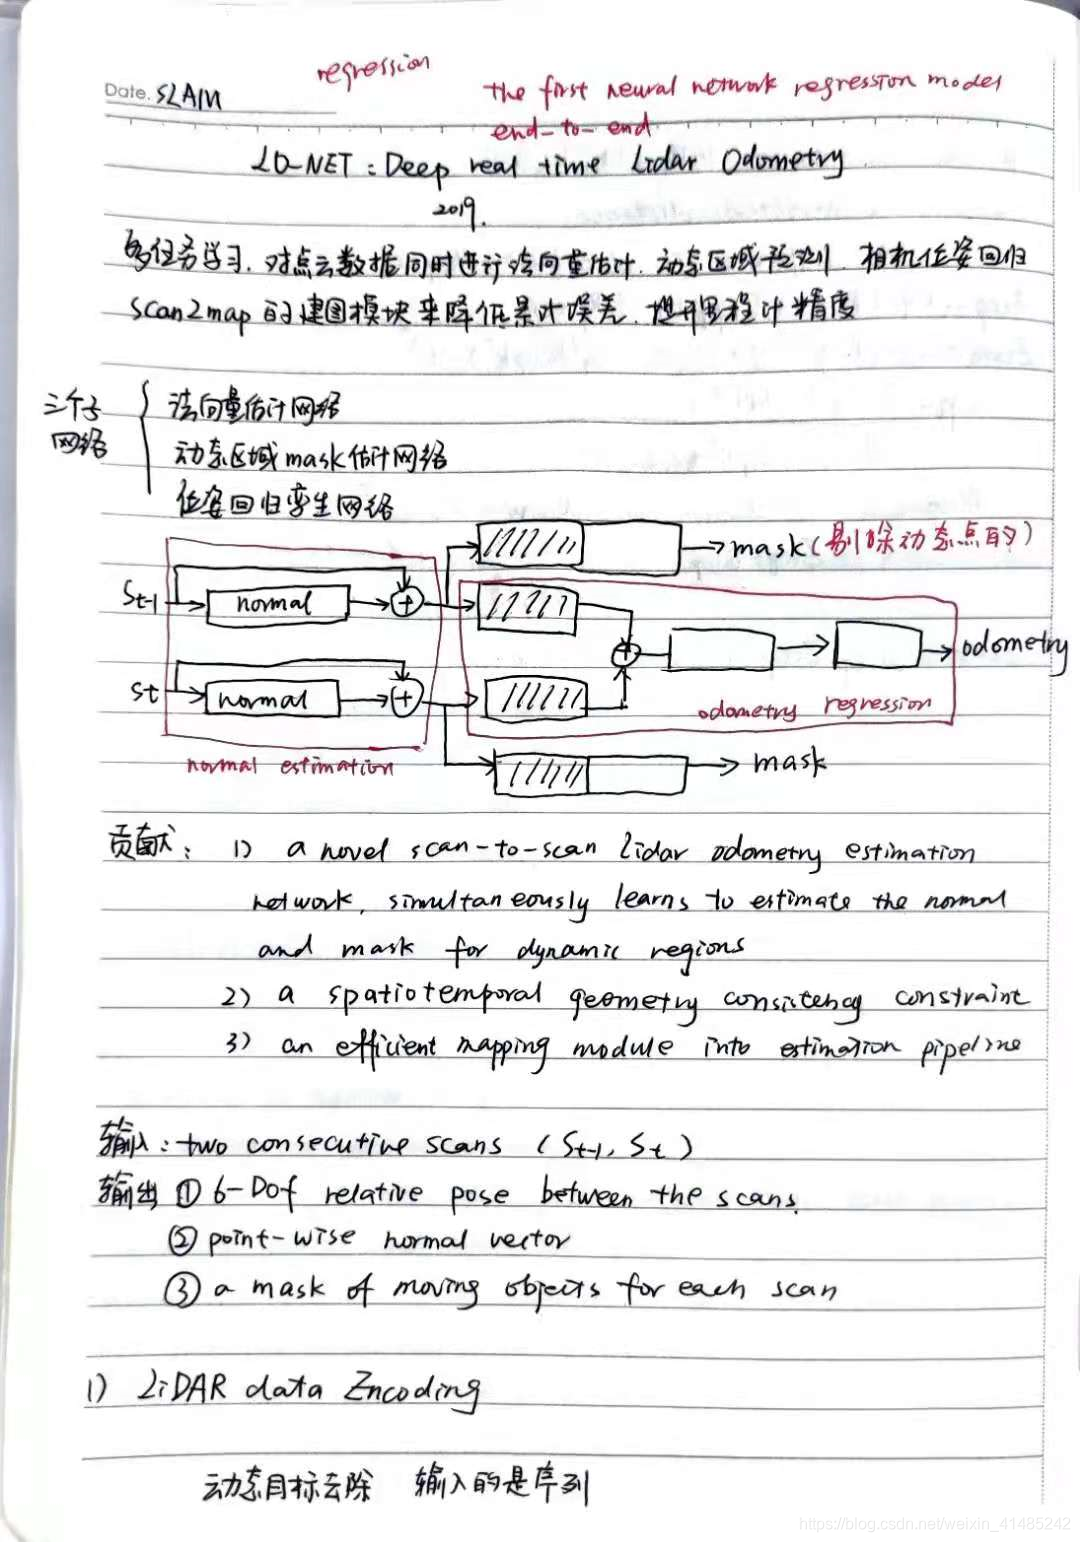 regression
Date. SLAM
the first neural network regression model
end-to-end
LO-NET : Deep real time Lidar Odometry
2019.
多任务学习. 对点云数据同时进行法向量估计. 动态区域预测. 相机位姿回归
scan2map 的建图模块来降低累计误差. 提升里程计精度
三个子网络
法向量估计网络
动态区域mask估计网络
位姿回归孪生网络
mask (剔除动态点的)
St-1
normal
+
+
odometry
St
normal
+
odometry regression
normal estimation
mask
贡献: 1) a novel scan-to-scan lidar odometry estimation
network, simultaneously learns to estimate the normal
and mask for dynamic regions
2) a spatiotemporal geometry consistency constraint
3) an efficient mapping module into estimation pipeline
输入: two consecutive scans (St-1, St)
输出 ① 6-Dof relative pose between the scans.
② point-wise normal vector
③ a mask of moving objects for each scan
1) LiDAR data Encoding
动态目标去除 输入的是序列
https://blog.csdn.net/weixin_41485242